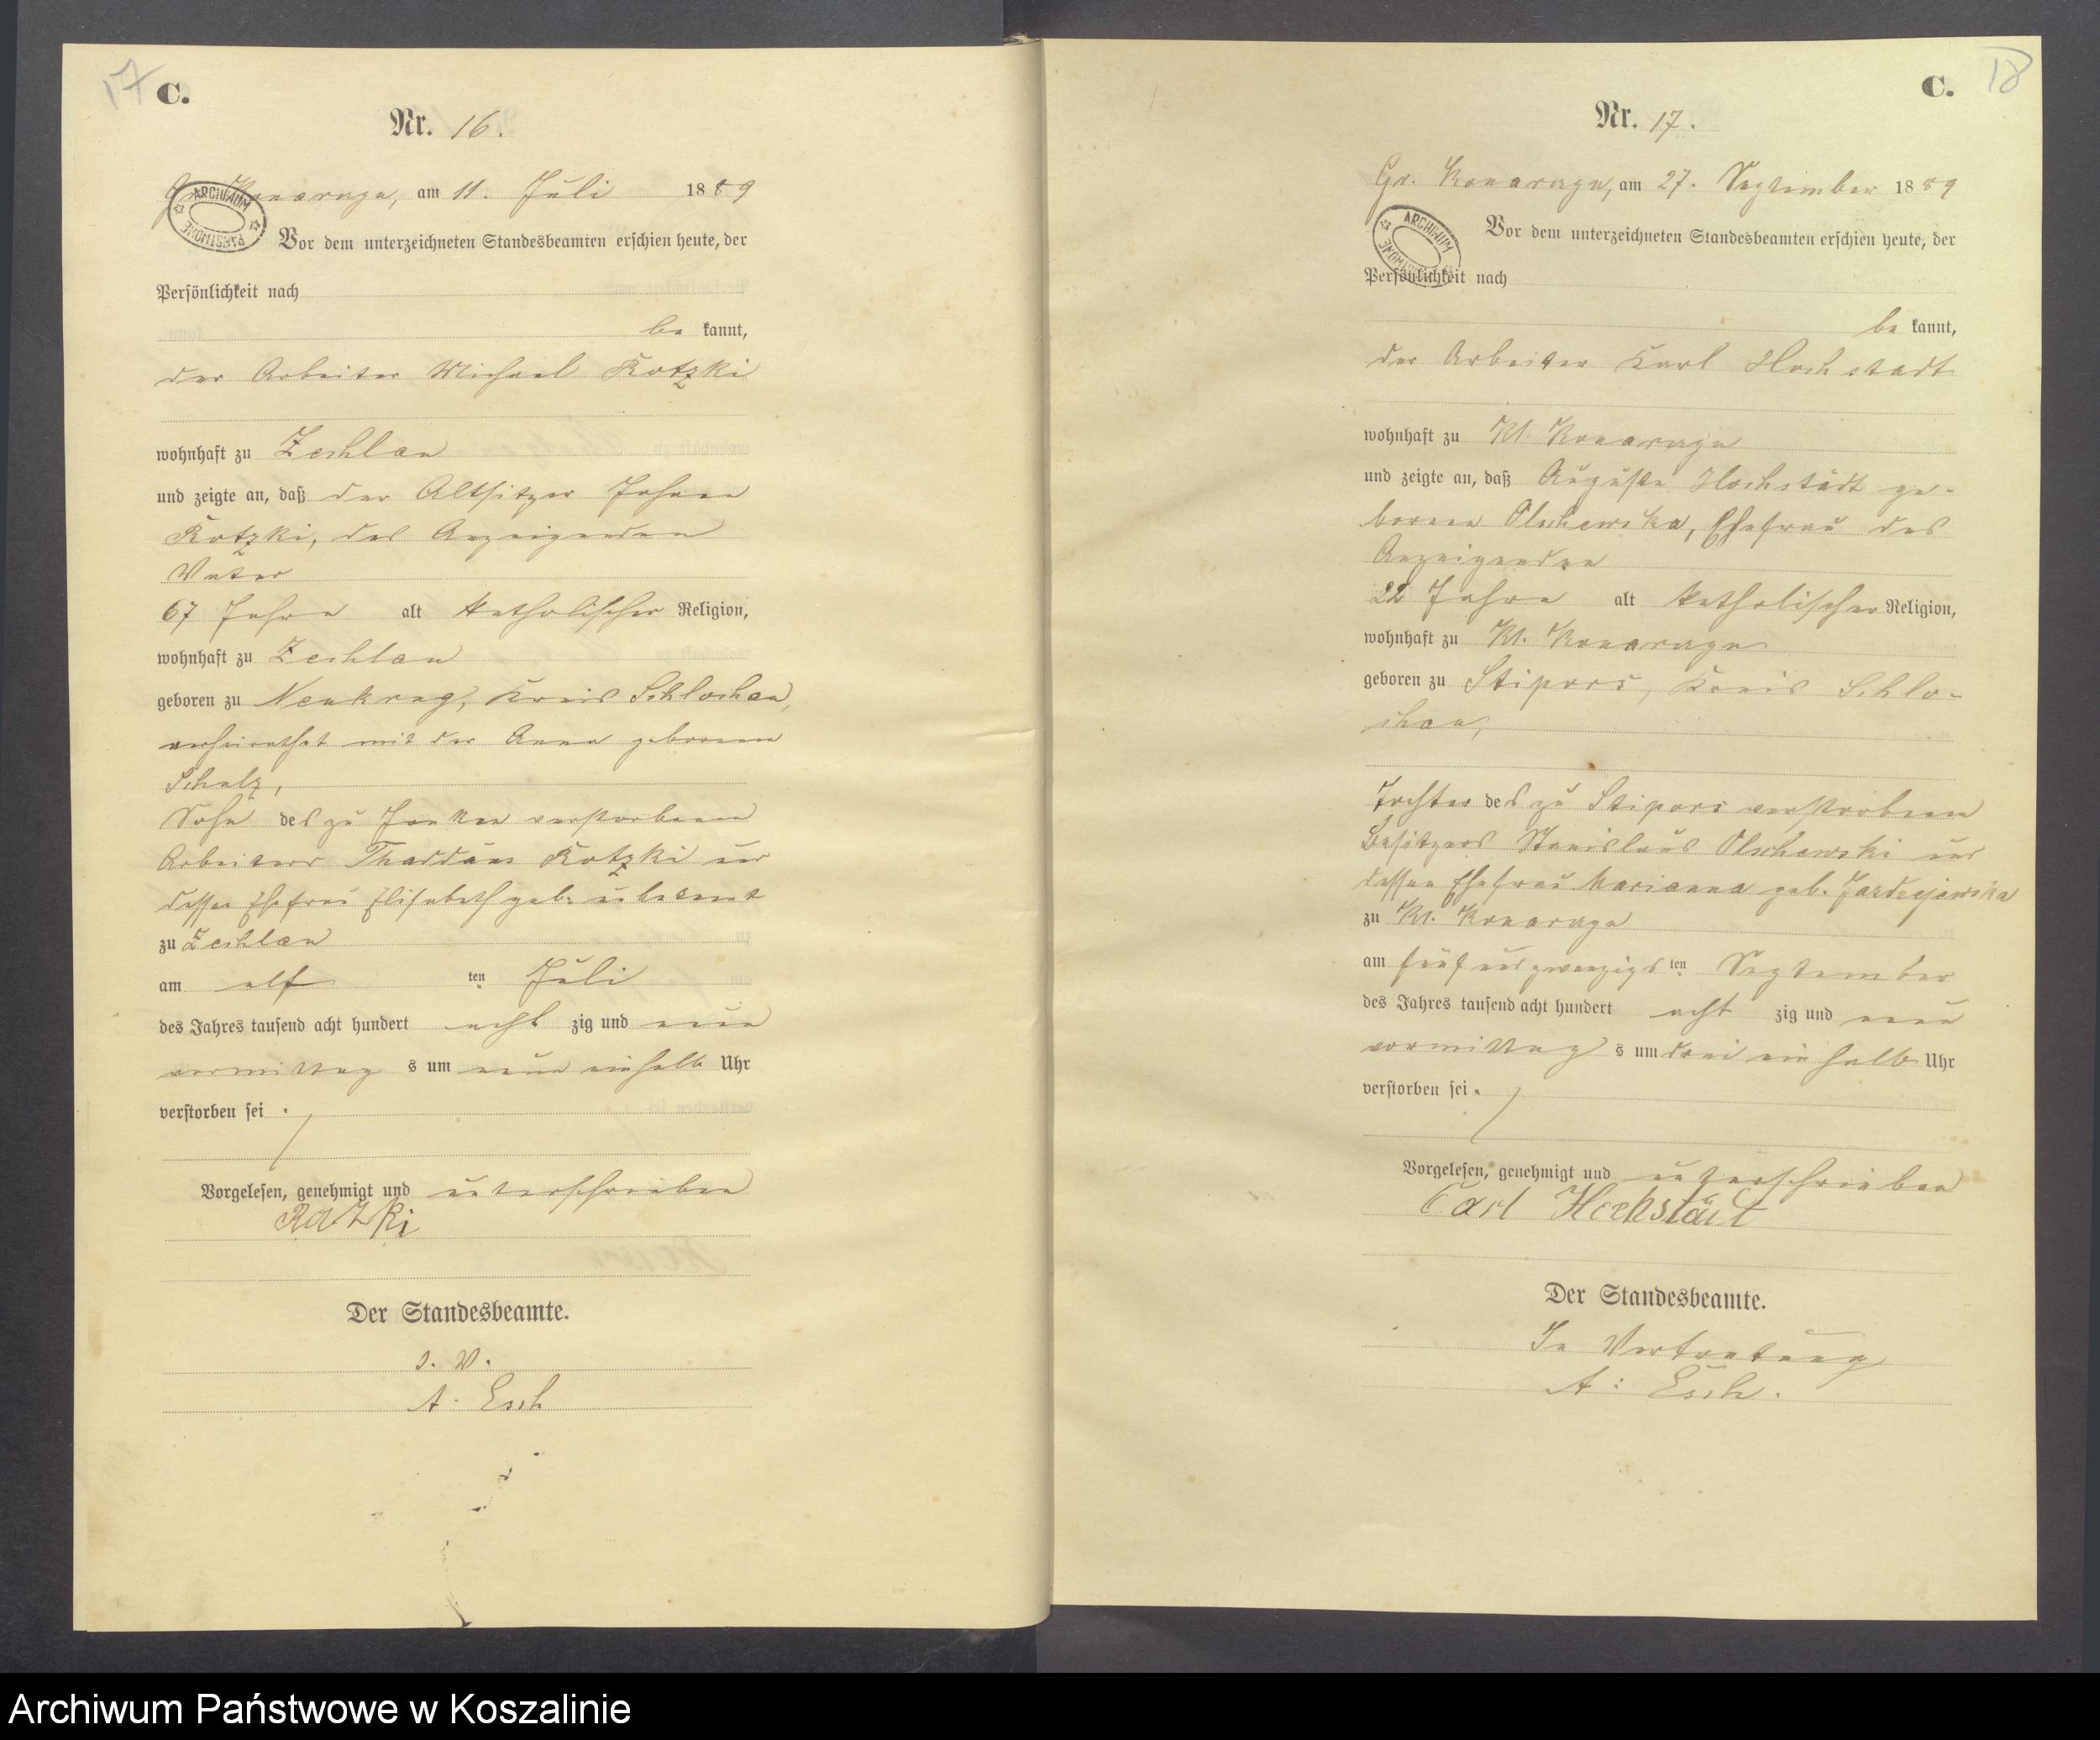 17
C.
Nr. 16.
Gr. Konarczyn, am 11. Juli 1889
ARCHIWUM PAŃSTWOWE
Vor dem unterzeichneten Standesbeamten erschien heute, der
Persönlichkeit nach
be kannt,
der Arbeiter Michael Kotzki
wohnhaft zu Zechlau
und zeigte an, daß der Altsitzer Johann
Kotzki, des Anzeigenden
Vater
67 Jahre alt katholischer Religion,
wohnhaft zu Zechlau
geboren zu Neukrug, Kreis Schlochau,
verheirathet mit der Anna geborenen
Schulz,
Sohn des zu verstorbenen
Arbeiters Thaddäus Kotzki und
dessen Ehefrau Elisabeth geb. unbekannt
zu Zechlau
am elf ten Juli
des Jahres tausend acht hundert acht zig und neun
vormittag s um neun einhalb Uhr
verstorben sei.
Vorgelesen, genehmigt und unterschrieben
Der Standesbeamte.
I. V.
A. Esch
18
C.
Nr. 17.
Gr. Konarczyn, am 27. September 1889
ARCHIWUM PAŃSTWOWE
Vor dem unterzeichneten Standesbeamten erschien heute, der
Persönlichkeit nach
be kannt,
der Arbeiter Karl Hochstädt
wohnhaft zu Kl. Konarczyn
und zeigte an, daß Auguste Hochstädt ge-
borene Olschewska, Ehefrau des
Anzeigenden
22 Jahre alt katholischer Religion,
wohnhaft zu Kl. Konarczyn
geboren zu Stipors, Kreis Schlo-
chau,
Tochter des zu Stipors verstorbenen
Besitzers Stanislaus Olschewski und
dessen Ehefrau Marianna geb.
zu Kl. Konarczyn
am fünf und zwanzigs ten September
des Jahres tausend acht hundert acht zig und neun
vormittag s um drei einhalb Uhr
verstorben sei.
Vorgelesen, genehmigt und unterschrieben
Carl Hochstädt
Der Standesbeamte.
In Vertretung
A: Esch.
Archiwum Państwowe w Koszalinie